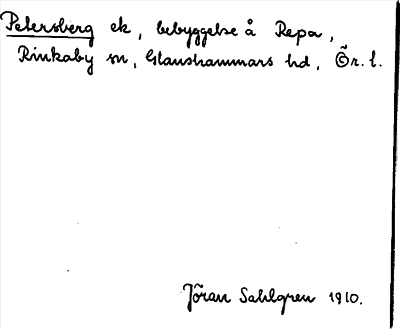 Petersberg ek, bebyggelse å Repa,
Rinkaby sn, Glanshammars hd, Ör. l.
Jöran Sahlgren 1910.